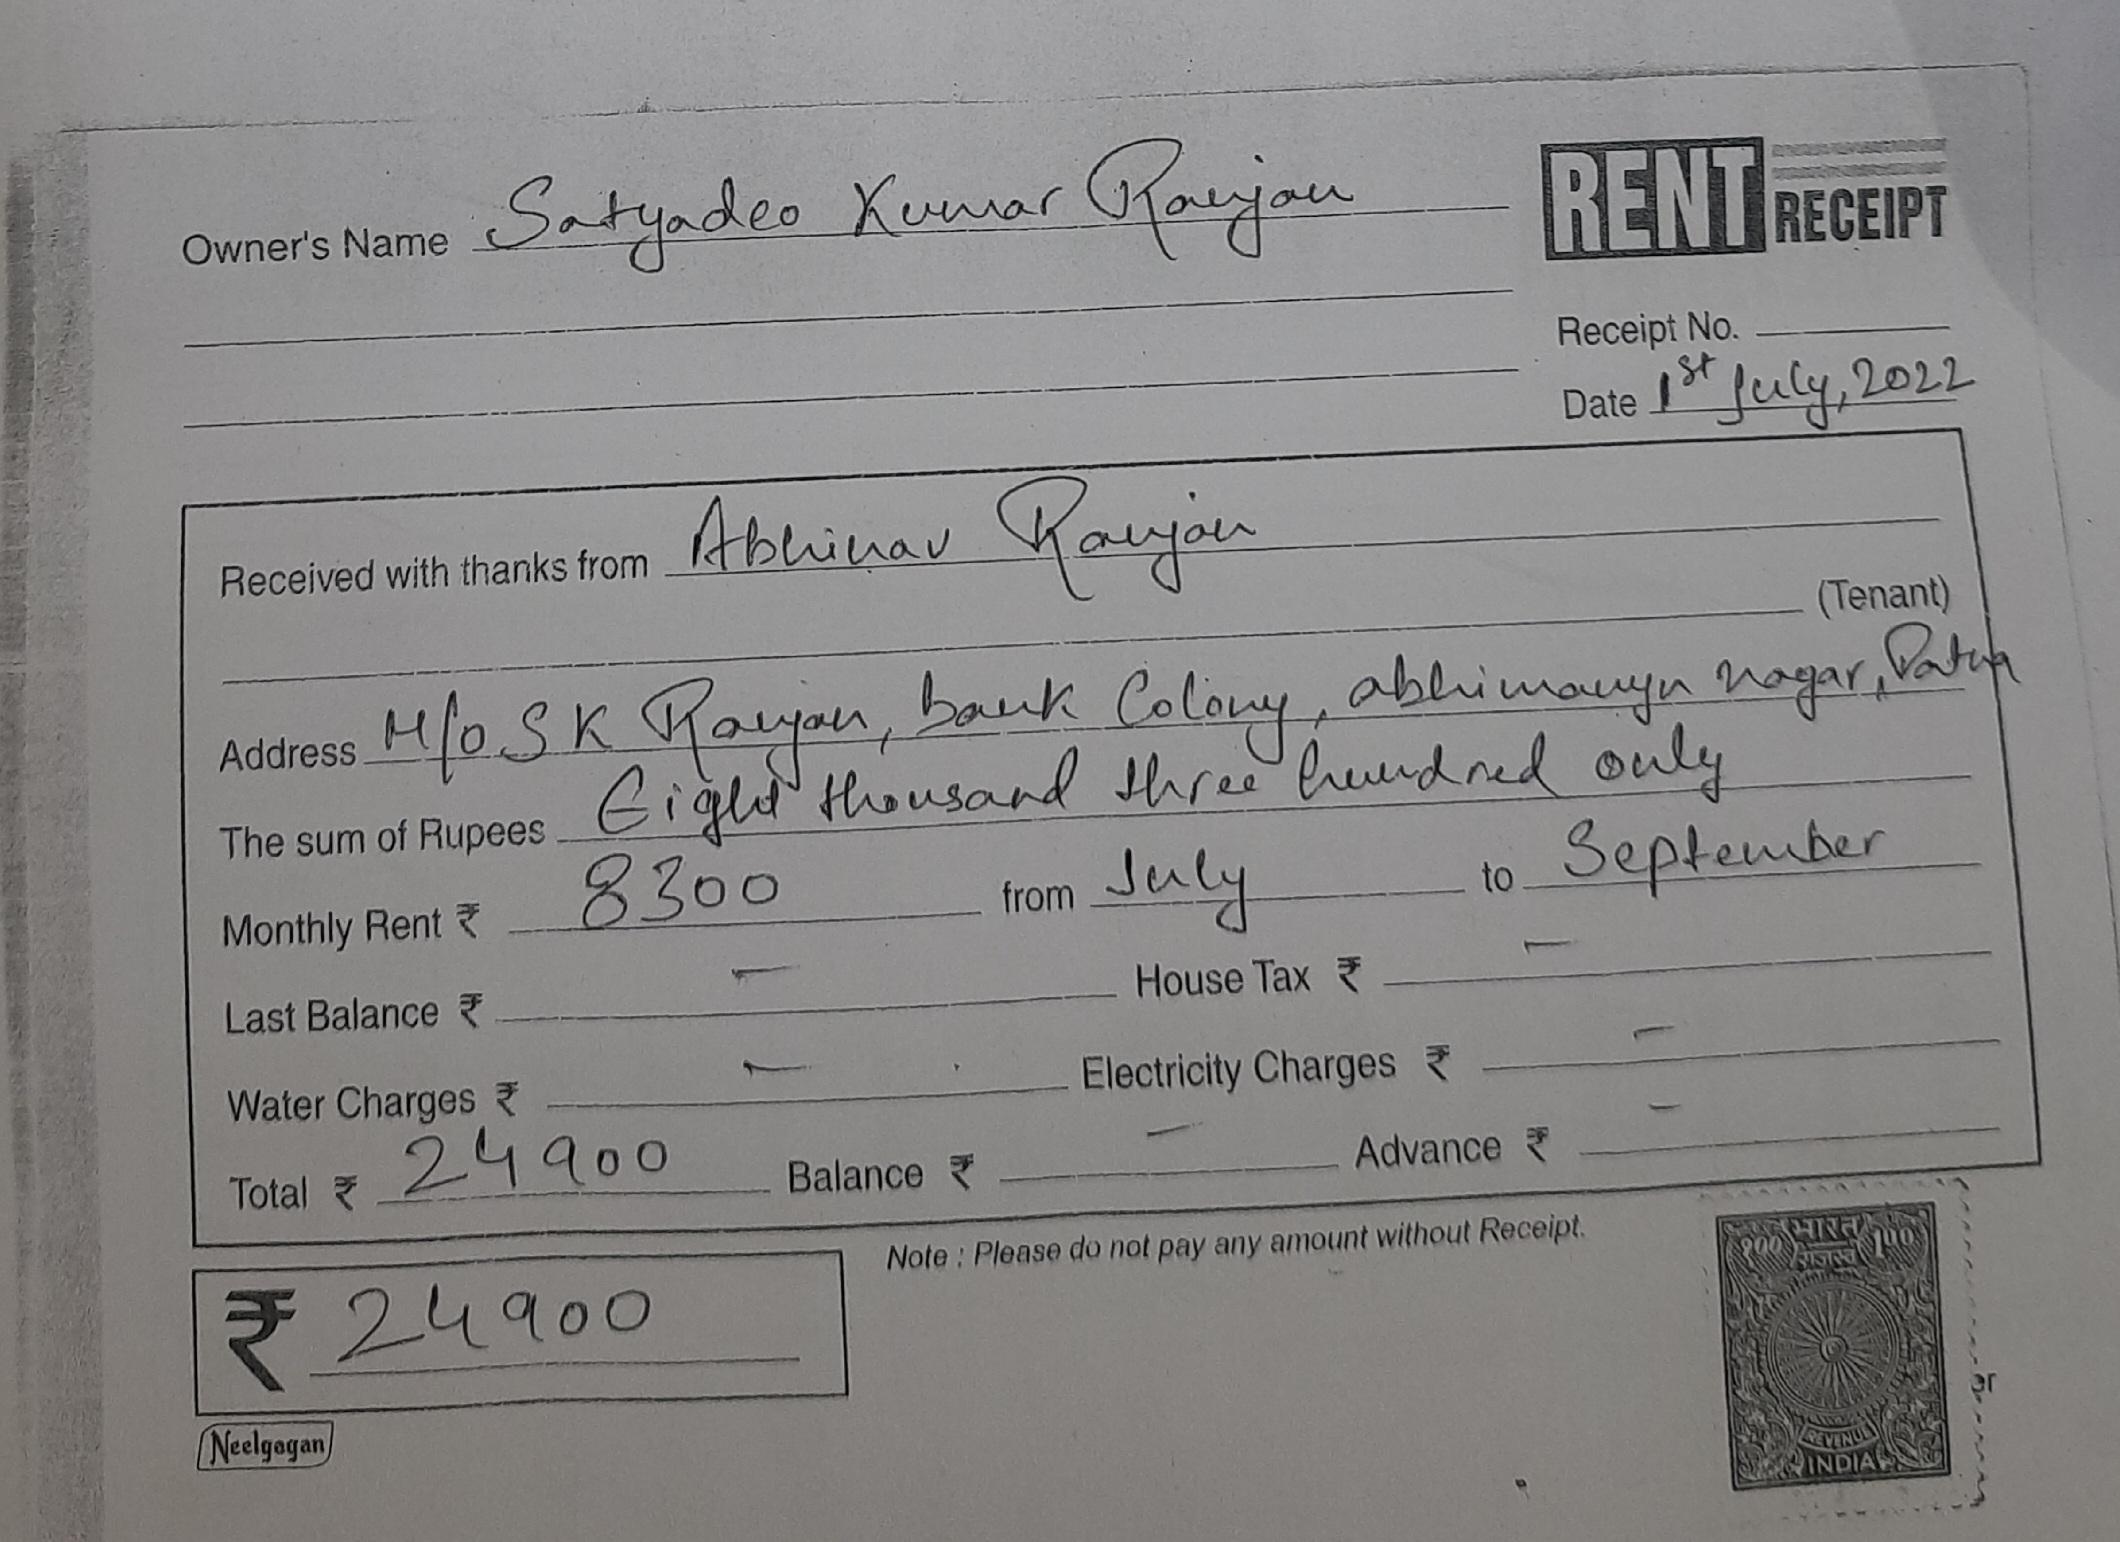 Owner's Name Satyadeo Kumar Ranjan
RENT RECEIPT
Receipt No.
Date 1st July, 2022
Received with thanks from Abhinav Ranjan
(Tenant)
Address H/o S K Ranjan, bank Colony, abhimanyu nagar, Patna
The sum of Rupees Eight thousand three hundred only
Monthly Rent ₹ 8300 from July to September
Last Balance ₹ - House Tax ₹ -
Water Charges ₹ - Electricity Charges ₹ -
Total ₹ 24900 Balance ₹ - Advance ₹ -
Note : Please do not pay any amount without Receipt.
₹ 24900
Neelgagan
भारत
१०० 100
REVENUE
INDIA